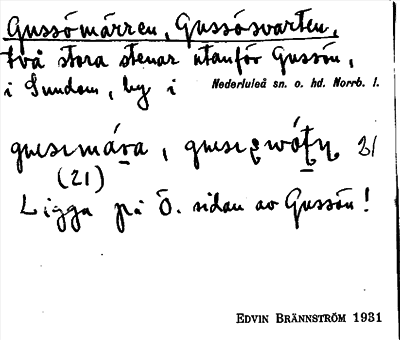 Gussömärren, Gussösvarten,
två stora stenar utanför Gussön,
i Sundom, by i Nederluleå sn. o. hd. Norrb. l.
21
(21)
Ligga på Ö. sidan av Gussön!
EDVIN BRÄNNSTRÖM 1931